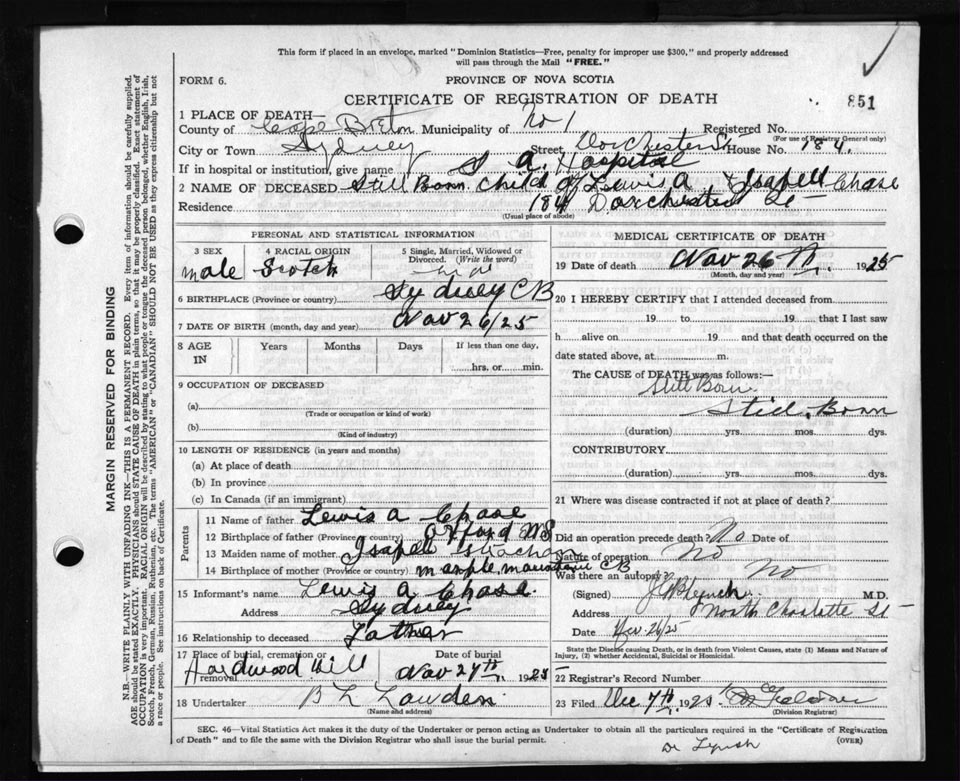 This form if placed in an envelope, marked "Dominion Statistics—Free, penalty for improper use $300," and properly addressed
will pass through the Mail "FREE."
FORM 6.
PROVINCE OF NOVA SCOTIA
851
CERTIFICATE OF REGISTRATION OF DEATH
1 PLACE OF DEATH—
County of Cape Breton Municipality of No 1 Registered No.
(For use of Registrar General only)
City or Town Sydney Street, Dorchester St House No. 184.
If in hospital or institution, give name S A. Hospital
2 NAME OF DECEASED Still Born Child of Lewis A & Isabell Chase
Residence 184 Dorchester St
(Usual place of abode)
PERSONAL AND STATISTICAL INFORMATION
3 SEX 4 RACIAL ORIGIN 5 Single, Married, Widowed or Divorced. (Write the word)
male Scotch
6 BIRTHPLACE (Province or country) Sydney CB
7 DATE OF BIRTH (month, day and year) Nov 26/25
8 AGE IN Years Months Days If less than one day,
hrs. or min.
9 OCCUPATION OF DECEASED
(a)
(Trade or occupation or kind of work)
(b)
(Kind of industry)
10 LENGTH OF RESIDENCE (in years and months)
(a) At place of death
(b) In province
(c) In Canada (if an immigrant)
Parents
11 Name of father Lewis A Chase
12 Birthplace of father (Province or country) Oxford NS
13 Maiden name of mother Isabell Strachan
14 Birthplace of mother (Province or country) CB
15 Informant's name Lewis A Chase.
Address Sydney
16 Relationship to deceased Father
17 Place of burial, cremation or removal Hardwood Hill
Date of burial Nov 27th, 1925
18 Undertaker B L Lowden
(Name and address)
MEDICAL CERTIFICATE OF DEATH
19 Date of death Nov 26th, 1925
(Month, day and year)
20 I HEREBY CERTIFY that I attended deceased from
19 to 19 that I last saw
h alive on 19 and that death occurred on the
date stated above, at m.
The CAUSE OF DEATH was as follows:—
Still Born
Still Born
(duration) yrs. mos. dys.
CONTRIBUTORY.
(duration) yrs. mos. dys.
21 Where was disease contracted if not at place of death?
Did an operation precede death? No Date of
Nature of operation No
Was there an autopsy? No
(Signed) Lynch M.D.
Address North Charlotte St
Date Nov. 26/25
State the Disease causing Death, or in death from Violent Causes, state (1) Means and Nature of Injury, (2) whether Accidental, Suicidal or Homicidal.
22 Registrar's Record Number
23 Filed Dec 7th, 1925
(Division Registrar)
SEC. 46—Vital Statistics Act makes it the duty of the Undertaker or person acting as Undertaker to obtain all the particulars required in the "Certificate of Registration
of Death" and to file the same with the Division Registrar who shall issue the burial permit.
(OVER)
Dr Lynch
MARGIN RESERVED FOR BINDING
N.B.—WRITE PLAINLY WITH UNFADING INK—THIS IS A PERMANENT RECORD. Every item of information should be carefully supplied.
AGE should be stated EXACTLY. PHYSICIANS should STATE CAUSE OF DEATH in plain terms, so that it may be properly classified. Exact statement of
OCCUPATION is very important. RACIAL ORIGIN will be described by stating to what people or tongue the deceased person belonged, whether English, Irish,
Scotch, French, German, Russian, Ruthenian, etc. The terms "AMERICAN" or "CANADIAN" SHOULD NOT BE USED as they express citizenship but not
a race or people. See instructions on back of Certificate.